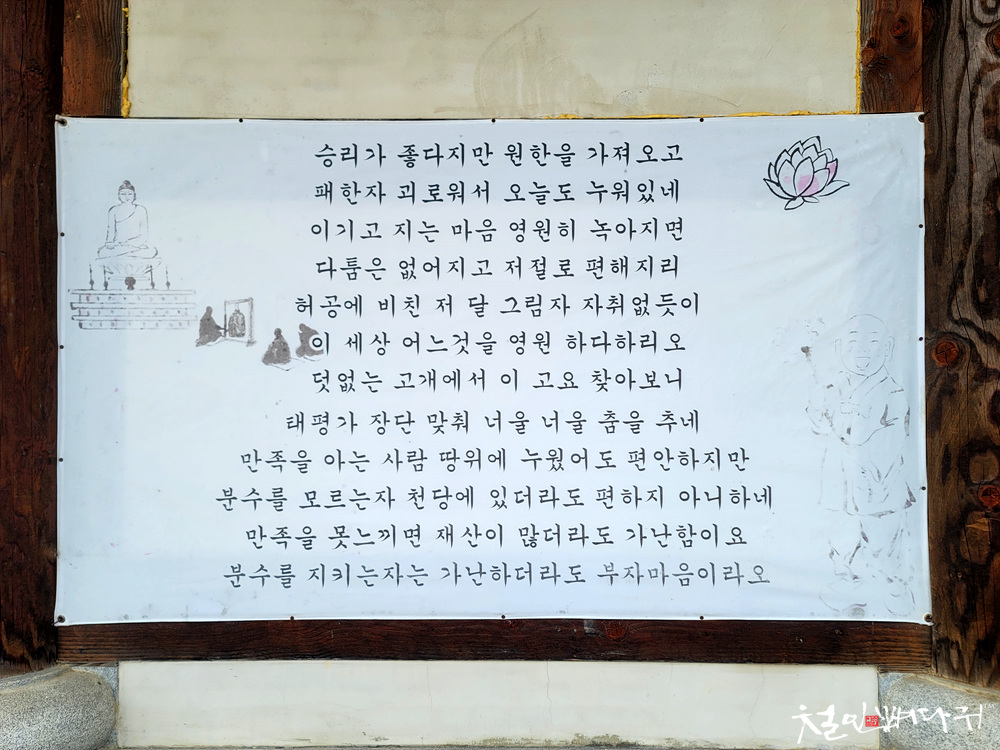 승리가 좋다지만 원한을 가져오고
패한자 괴로워서 오늘도 누워있네
이기고 지는 마음 영원히 녹아지면
다툼은 없어지고 저절로 편해지리
허공에 비친 저 달 그림자 자취없듯이
이 세상 어느것을 영원 하다하리오
덧없는 고개에서 이 고요 찾아보니
태평가 장단 맞춰 너울 너울 춤을 추네
만족을 아는 사람 땅위에 누웠어도 편안하지만
분수를 모르는자 천당에 있더라도 편하지 아니하네
만족을 못느끼면 재산이 많더라도 가난함이요
분수를 지키는자는 가난하더라도 부자마음이라오
철인빠따귀